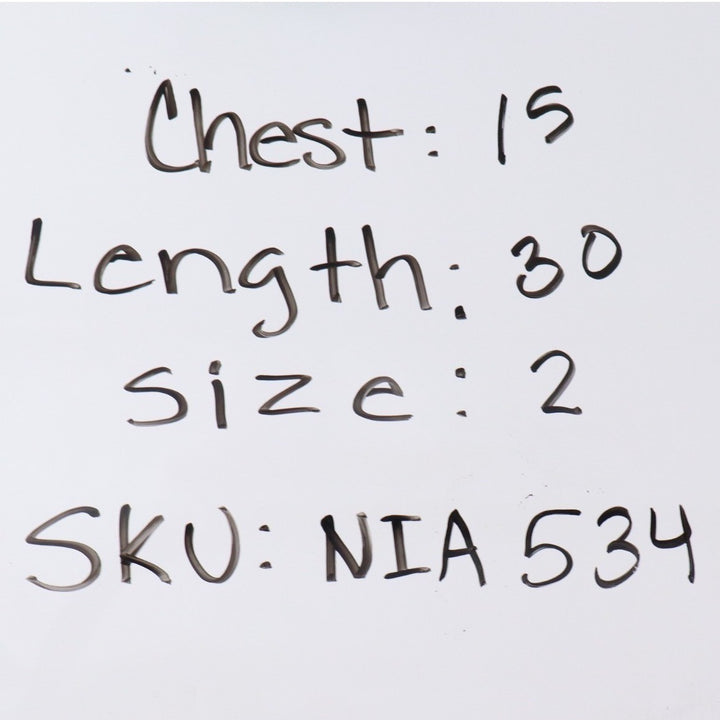 Chest: 15
Length: 30
Size: 2
SKU: NIA 534